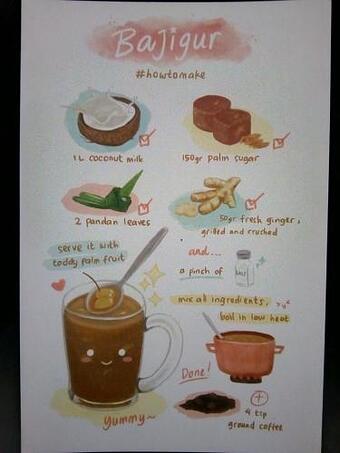 Bajigur
#howtomake
1L coconut milk
150gr palm sugar
2 pandan leaves
50gr fresh ginger,
grilled and crushed
serve it with
toddy palm fruit
and...
a pinch of
SALT
mix all ingredients,
boil in low heat
Done!
4 tsp
ground coffee
yummy~